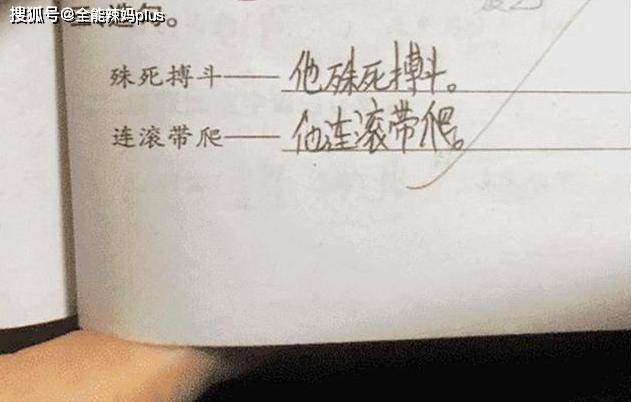 搜狐号@全能辣妈plus
造句。
殊死搏斗——他殊死搏斗。
连滚带爬——他连滚带爬。